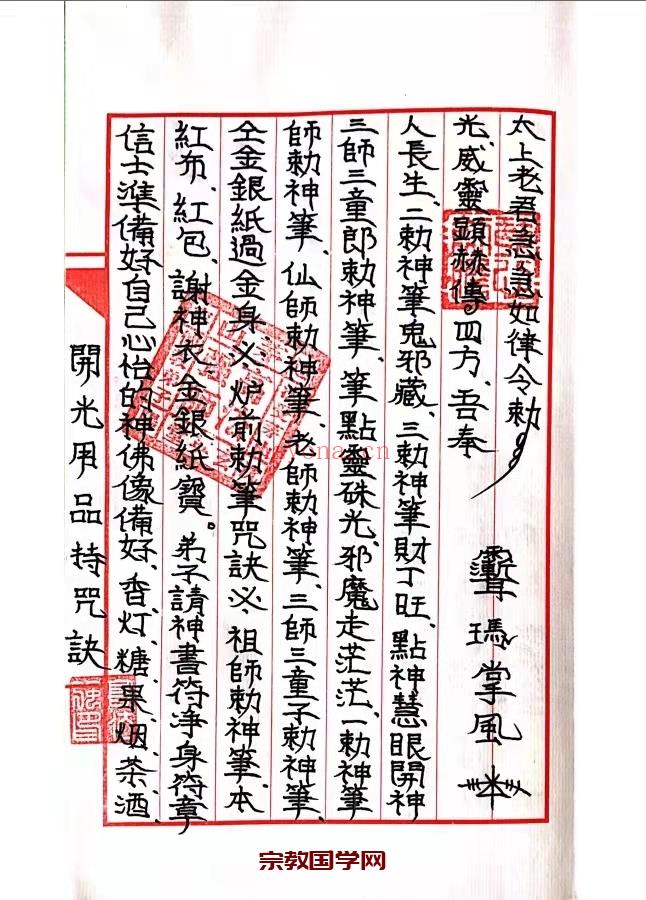 開光用品持咒訣
信士準備好自己心怡的神佛像備好、香灯、糖果、烟、茶、酒、
紅布、紅包、謝神衣、金銀紙寶。弟子請神書符浄身符章
仝金銀紙過金身、必、炉前勅筆咒訣必、祖師勅神筆、本
師勅神筆、仙師勅神筆、老師勅神筆、三師三童子勅神筆、
三師三童郎勅神筆、筆點靈硃光、邪魔走茫茫、一勅神筆
人長生、二勅神筆鬼邪藏、三勅神筆財丁旺、點神慧眼開神
光、威靈顯赫傳四方、吾奉
太上老君急急如律令勅
瑪掌風
宗教国学网